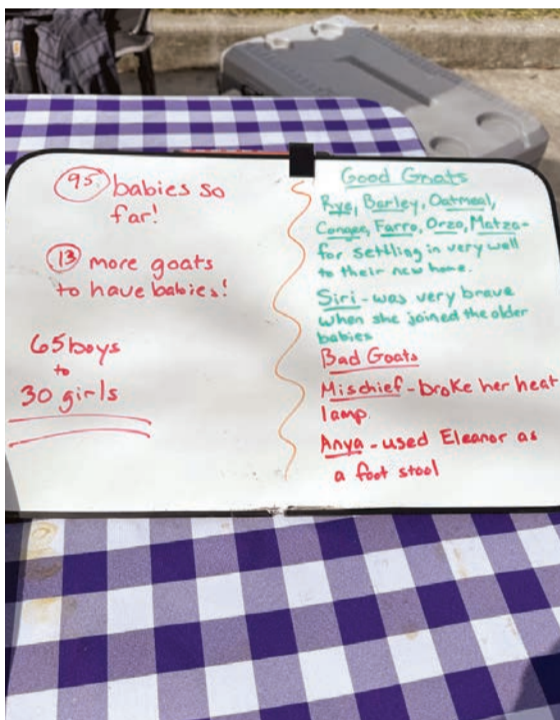 95 babies so
far!
13 more goats
to have babies!
65 boys
to
30 girls
Good Goats
Rye, Barley, Oatmeal,
Congee, Farro, Orzo, Matza-
for settling in very well
to their new home.
Siri - was very brave
when she joined the older
babies
Bad Goats
Mischief - broke her heat
lamp.
Anya - used Eleanor as
a foot stool